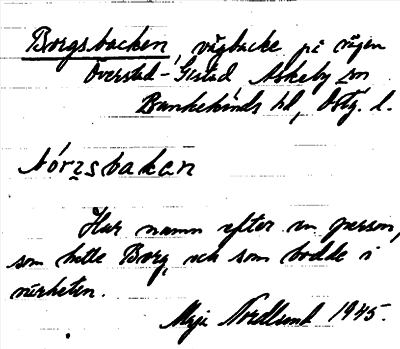 Borgsbacken, vägbacke på vägen
Överstad-Gistad Askeby sn
Bankekinds hd, Östg. l.
Bórsbakan
Har namn efter en person,
som hette Borg, och som bodde i
närheten.
Nordlund 1945.